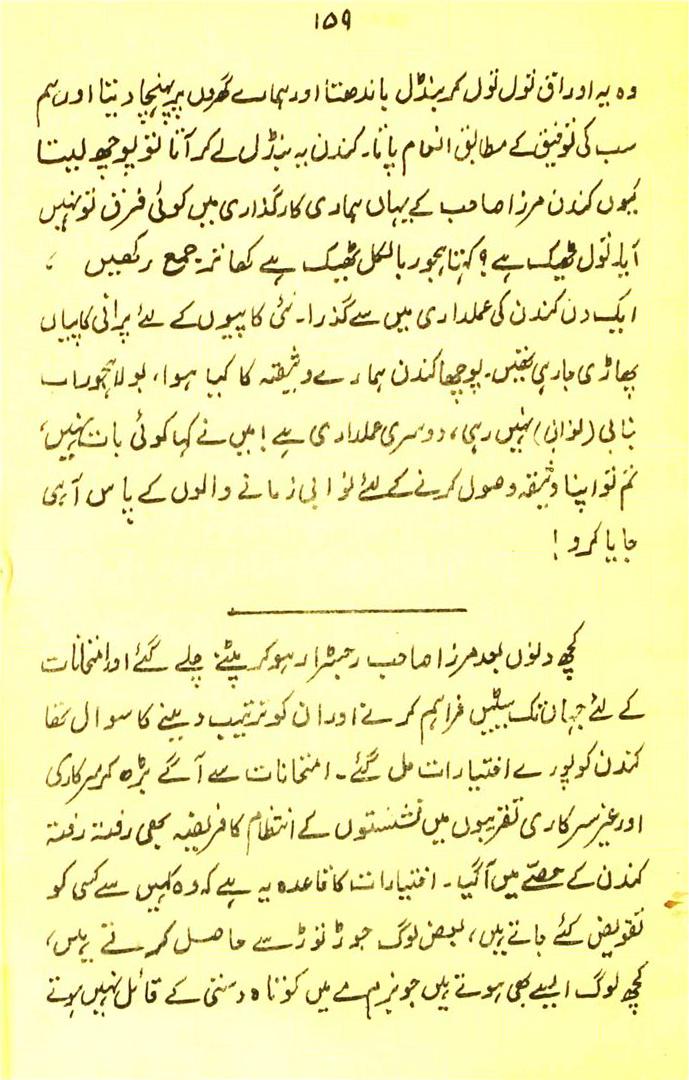 ۱۵۹
وہ یہ اوراق تول تول کر بنڈل باندھتا اور ہمارے گھروں پر پہنچا دیتا اور ہم
سب کی توفیق کے مطابق انعام پاتا۔ کندن یہ بنڈل لے کر آتا تو پوچھ لیتا
کیوں کندن مرزا صاحب کے یہاں ہماری کارگذاری میں کوئی فرق تو نہیں
آیا۔ تول ٹھیک ہے؟ کہتا ہجور بالکل ٹھیک ہے کھاتر۔جمع رکھیں ،
ایک دن کندن کی عملداری میں سے گذرا۔ نئی کاپیوں کے لئے پرانی کاپیاں
پھاڑی جارہی تھیں۔ پوچھا کندن ہمارے وثیقہ کا کیا ہوا، بولا ہجور اب
بنابی (نوابی) نہیں رہی، دوسری عملداری ہے! میں نے کہا کوئی بات نہیں،
تم تو اپنا وثیقہ وصول کرنے کے لئے نوابی زمانے والوں کے پاس آہی
جایا کرو!
کچھ دنوں بعد مرزا صاحب رجسٹرار ہوکر پٹنے چلے گئے اور امتحانات
کے لئے جہاں تک سیٹیں فراہم کرنے اور ان کو ترتیب دینے کا سوال تھا
کندن کو پورے اختیارات مل گئے۔ امتحانات سے آگے بڑھ کر سرکاری
اور غیر سرکاری تقریبوں میں نشستوں کے انتظام کا فریضہ بھی رفتہ رفتہ
کندن کے حصے میں آگیا۔ اختیارات کا قاعدہ یہ ہے کہ وہ کہیں سے کسی کو
تفویض کئے جاتے ہیں، بعض لوگ جوڑ توڑ سے حاصل کرتے ہیں،
کچھ لوگ ایسے بھی ہوتے ہیں جو بزم مے میں کوتاہ دستی کے قائل نہیں ہوتے